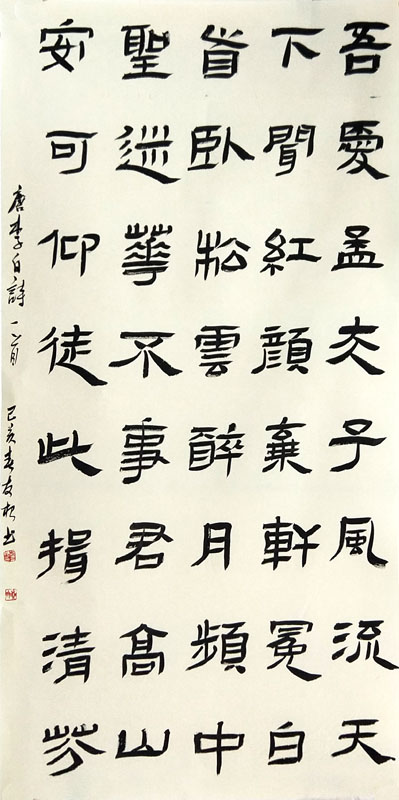 吾愛孟夫子風流天
下聞紅顔棄軒冕白
首臥松雲醉月頻中
聖迷華不事君高山
安可仰徒此揖清芬
唐李白詩一首 己亥春友松书